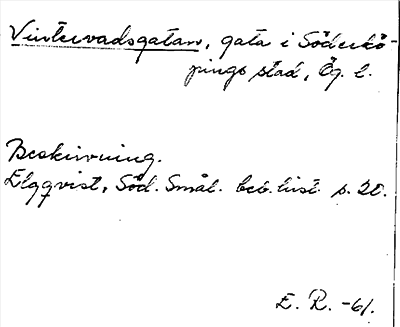 Vintervadsgatan, gata i Söderkö-
pings stad, Ög. l.
Beskrivning.
Elgqvist, Söd. Smål. beb. hist. s. 20.
E. R. -61.